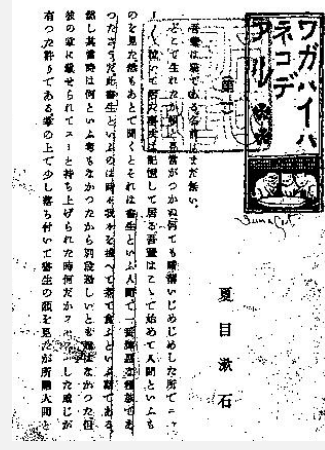 ワガハイハ
ネコデ
アル
夏目漱石
吾輩は猫である名前はまだ無い。
どこで生れたか頓と見當がつかぬ何でも暗薄いじめじめした所でニャ
泣いて居た事丈は記憶して居る吾輩はこゝで始めて人間といふも
のを見た然もあとで聞くとそれは書生といふ人間で一番獰惡な種族であ
つたさうだ此書生といふのは時々我々を捕へて煮て食ふといふ話である
然し其當時は何といふ考もなかつたから別段恐しいとも思はなかつた但
彼の掌に載せられてスーと持ち上げられた時何だかフハフハした感じが
有つた許りである掌の上で少し落ち付いて書生の顔を見たが所謂人間と